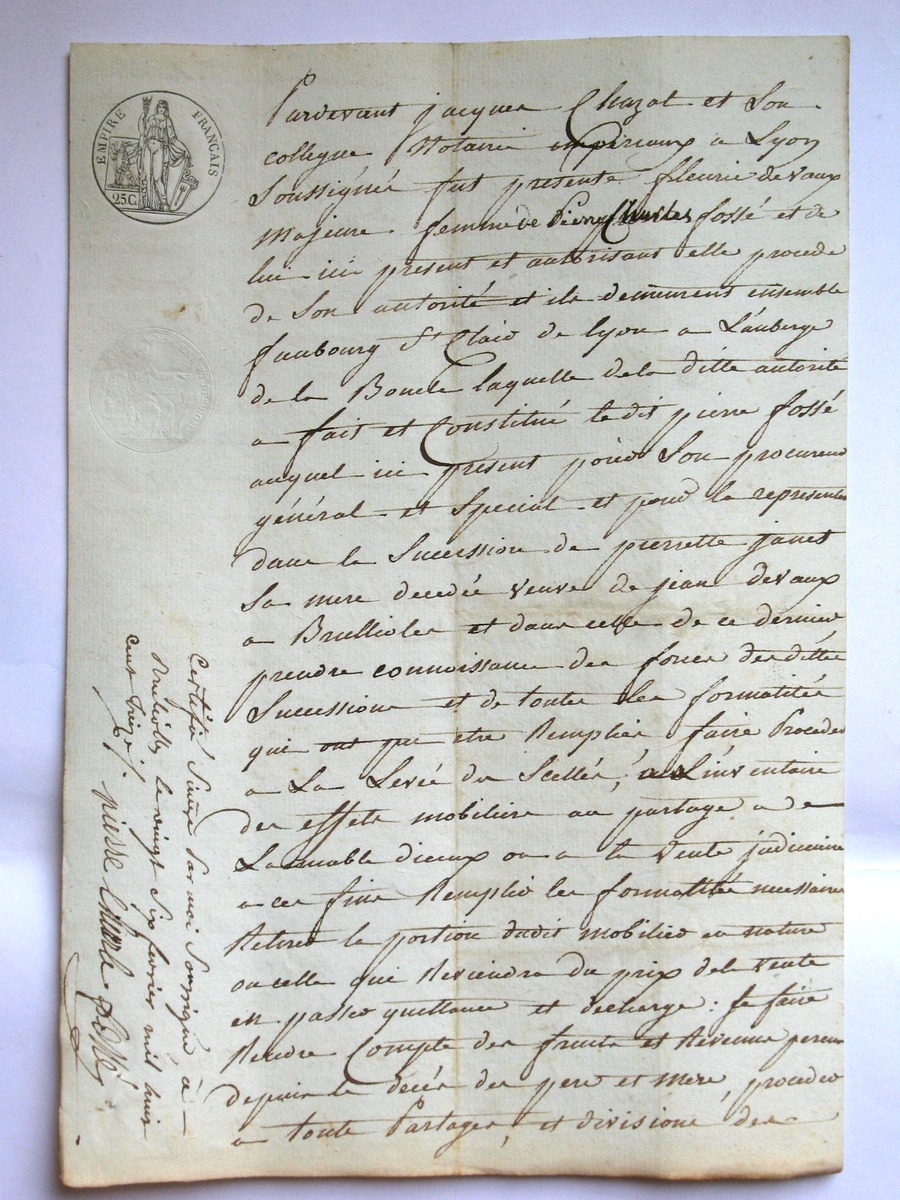 EMPIRE FRANÇAIS
25 C.
Pardevant jacques Chazal et Son
collegue Notaires imperiaux a Lyon
Soussignés fut présente fleurie devaux
Majeure femme de Pierre Charles fossé et de
lui ici present et autorisant elle procede
de Son autorité et ils demeurent ensemble
faubourg St Clair de lyon a L'auberge
de la Boucle laquelle de la ditte autorité
a fait et Constitué ledit pierre fossé
auquel ici present pour Son procureur
général et Special et pour la representer
dans la Sucession de pierrette janet
Sa mere decedée veuve de jean devaux
a Brullioles et dans celle de ce dernier
prendre connoissance des forces desdittes
Successions et de toutes les formalités
qui ont pu etre Remplies faire Proceder
a La Levée des Scellés, a L'inventaire
des effets mobiliers au partage a
Lamiable dieux ou a la vente judiciaire
a ces fins Remplir les formalités necessaires
Retirer la portion dudit mobilier en nature
ou celle qui Reviendra du prix de la vente
en passer quittance et decharge : se faire
Rendre Compte des fruits et Revenus percus
depuis le decés des pere et mere, proceder
a tous Partages, et divisions des
Certifié Sincere par moi Soussigné à
Brullioles le vingt Six fevrier mil huit
cent treize
pierre Charle fossé